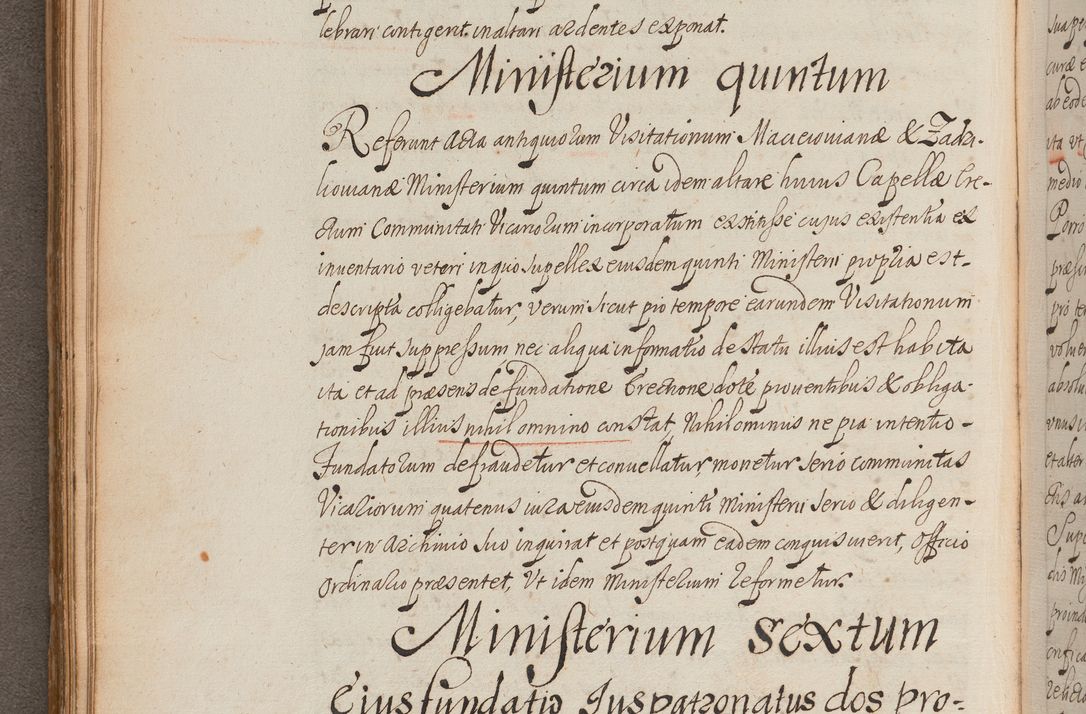 lebrari contigerit in altari ardentes exponat.
Ministerium quintum
Referunt Acta antiquiorum Visitationum Macieiovianæ & Zadzi-
liovianæ Ministerium quintum circa idem altare huius Capellæ Ere-
ctum Communitati Vicariorum incorporatum exstitisse cujus existentia ex
inventario veteri in quo supellex eiusdem quinti Ministerii propria est
descripta colligebatur, verum sicut pro tempore earundem Visitationum
jam fuit suppressum nec aliqua informatio de statu illius est habita
ita et ad præsens de fundatione Erectione dote proventibus & obliga-
tionibus illius nihil omnino constat, Nihilominus ne pia intentio
Fundatorum defraudetur et convellatur, monetur serio communitas
Vicariorum quatenus iura eiusdem quinti Ministerii serio & diligen-
ter in Archivio suo inquirat et postquam eadem conquisiverit, Officio
Ordinario præsentet, Ut idem Ministerium reformetur.
Ministerium sextum
Eius fundatio Juspatronatus dos pro-
sua
curæ
ab eod
ita ut
medio
Porro
pro te
volue
absolu
unus
et alter
ctis
Supe
proind